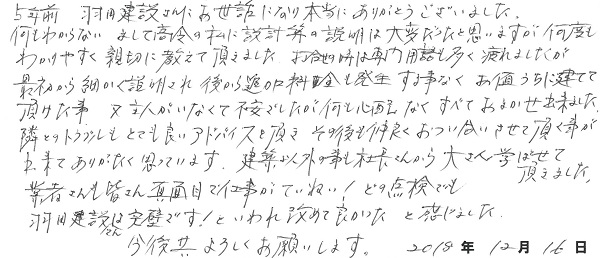 5年前 羽田建設さんにお世話になり本当にありがとうございました。
何もわからない ましてや高令の私に設計等の説明は大変だったと思いますが何度も
わかりやすく親切に教えて頂きました お打合せの時は専門用語も多く疲れましたが
最初から細かく説明され後から追加料金も発生する事なく お値うちに建てて
頂けた事 又主人がいなくて不安でしたが何も心配なく すべておまかせ出来ました
隣とのトラブルも とても良いアドバイスを頂き その後も仲良くおつい合いさせて頂く事が
出来てありがたく思っています。建築以外の事も社長さんから大きく学ばせて
頂きました。
業者さんも皆さん真面目で仕事がていねい！どの点検でも
羽田建設さんは完璧です！といわれ改めて良かったと感じました。
今後共よろしくお願いします。 2018年12月16日